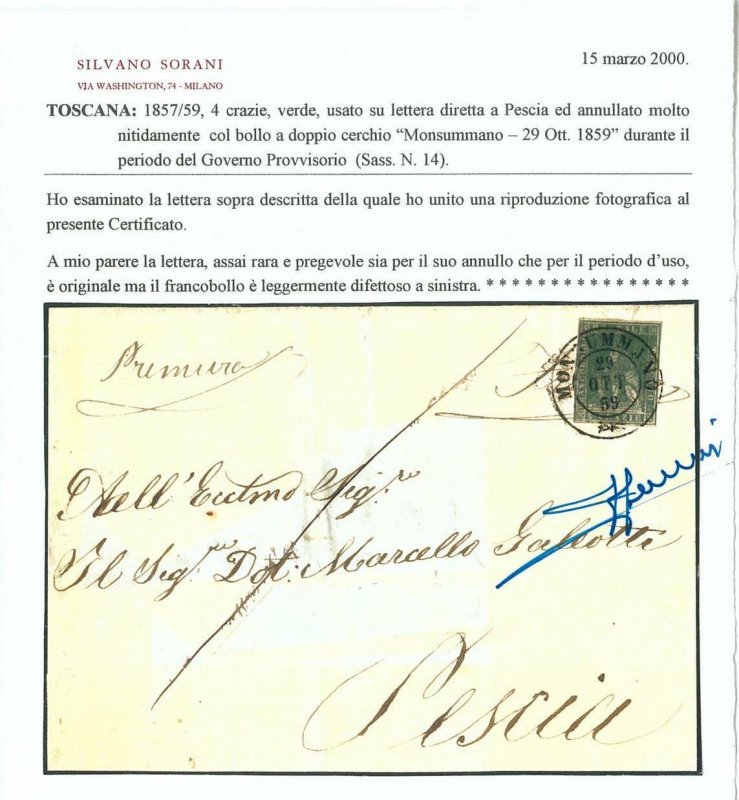 SILVANO SORANI
VIA WASHINGTON, 74 - MILANO
15 marzo 2000.
TOSCANA: 1857/59, 4 crazie, verde, usato su lettera diretta a Pescia ed annullato molto
nitidamente col bollo a doppio cerchio “Monsummano – 29 Ott. 1859” durante il
periodo del Governo Provvisorio (Sass. N. 14).
Ho esaminato la lettera sopra descritta della quale ho unito una riproduzione fotografica al
presente Certificato.
A mio parere la lettera, assai rara e pregevole sia per il suo annullo che per il periodo d’uso,
è originale ma il francobollo è leggermente difettoso a sinistra. * * * * * * * * * * * * * * * *
Premura
MONSUMMANO
29
OTT
59
Dell'Ecctmo Sig.re
Il Sig.re Dot. Marcello Galeotti
Pescia